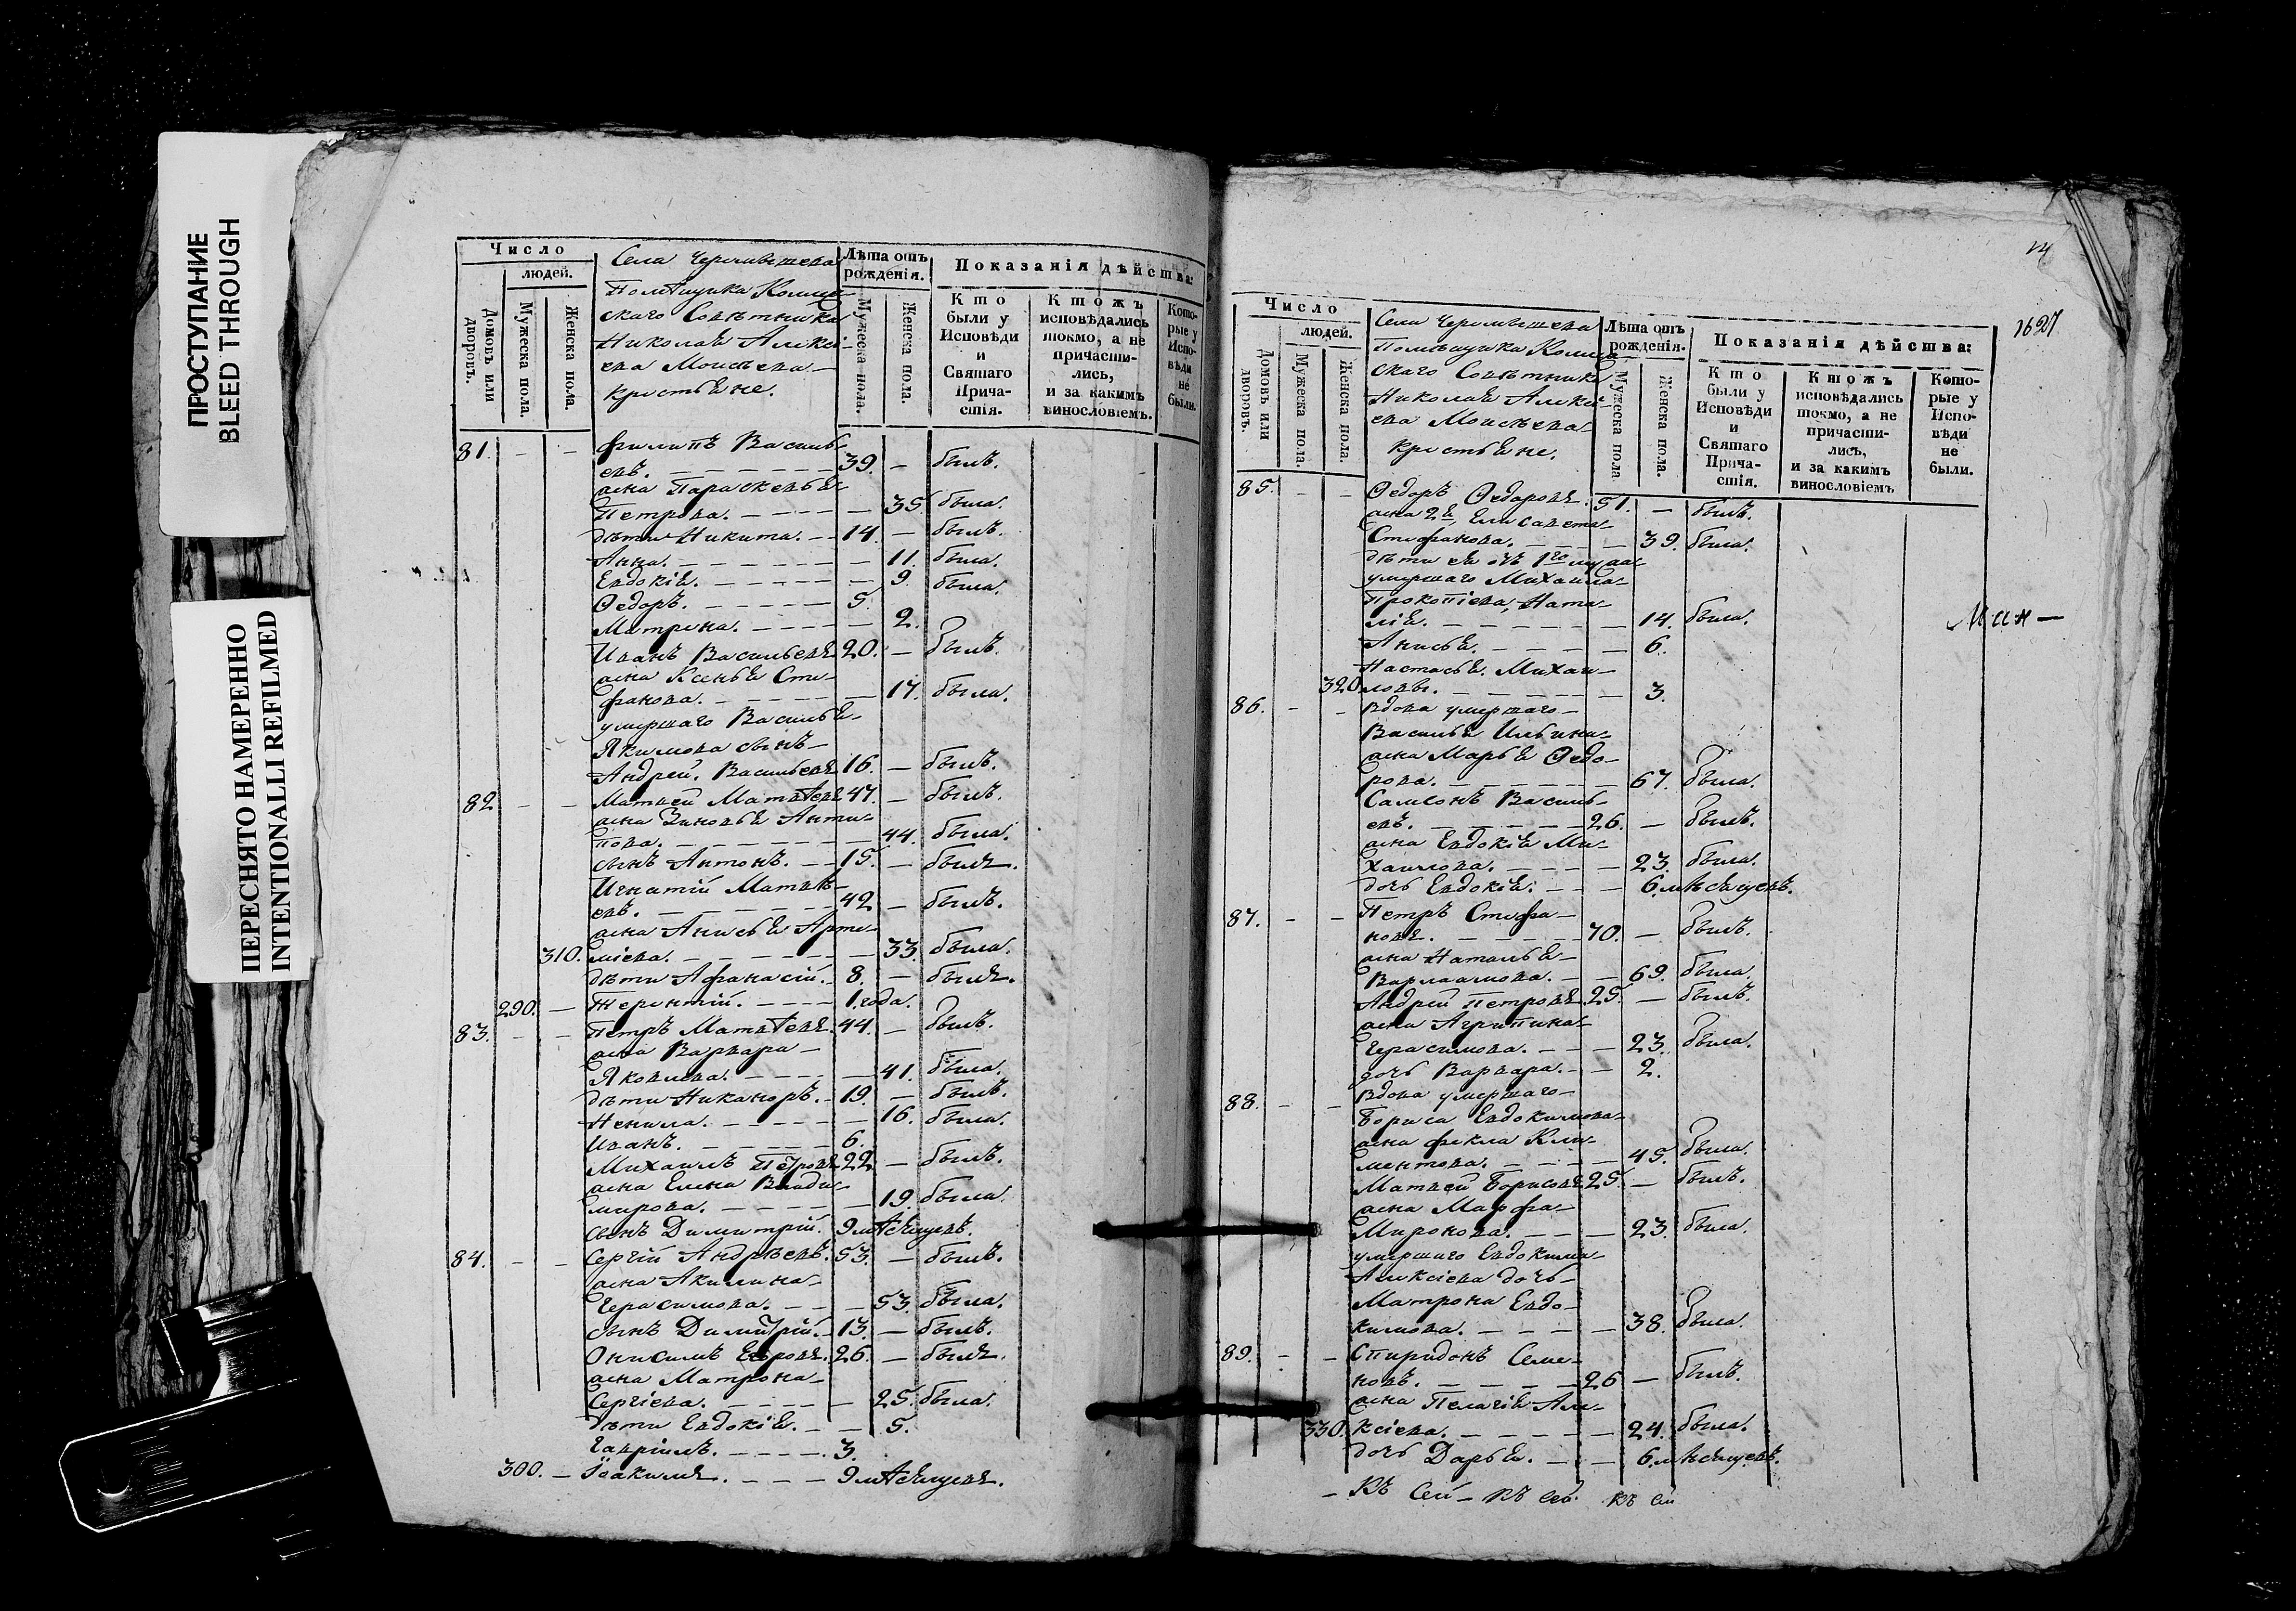 ПРОСТУПАНИЕ
BLEED THROUGH
ПЕРЕСНЯТО НАМЕРЕННО
INTENTIONALLI REFILMED
Число
людей.
Домовъ или дворовъ.
Мужеска пола.
Женска пола.
Села
Помѣщика
скаго Совѣтника
Николая Алексѣ-
ева Моисеева
крестьяне.
Лѣта отъ рожденія.
Мужеска пола.
Женска пола.
Показанія дѣйства:
Кто были у Исповѣди и Святаго Причастія.
Ктожъ исповѣдались токмо, а не причастились, и за какимъ винословіемъ.
Которые у Исповѣди не были.
81. - - Филипъ Василь-
евъ. 39. - былъ.
жена Параскевья
Петрова. - 35. была.
дѣти Никита. 14. - былъ.
Анна. - 11. была.
Евдокія. - 9. была.
Ѳедоръ. 5.
Матрена. - 2.
Иванъ Васильевъ 20. - былъ.
жена Ксенья Сте-
фанова. - 17. была.
умершаго Василья
Якимова сынъ
Андрей Васильевъ 16. - былъ.
82 - - Матвей Матвѣевъ 47. - былъ.
жена Зиновья Анти-
пова. - 44. была.
сынъ Антонъ. 15. - былъ.
Игнатій Матвѣ-
евъ. 42 - былъ.
жена Анисья Арте-
310. міева. - 33. была.
дѣти Афанасій. 8. - былъ.
290. - Терентій. 1 года.
83. - - Петръ Матвѣевъ. 44. - былъ.
жена Варвара
Яковлева. - 41. была.
дѣти Никаноръ. 19. - былъ.
Ненила. - 16. была.
Иванъ. 6.
Михаилъ Петровъ 22 - былъ.
жена Елена Влади-
мирова. - 19. была.
сынъ Димитрій. 9 мѣсяцевъ.
84. - - Сергій Андрѣевъ. 53. - былъ.
жена Акилина
Герасимова. - 53. была.
сынъ Димитрій. 13. - былъ.
Онисимъ 26. - былъ.
жена Матрона
Сергіева. - 25. была.
дѣти Евдокія. - 5.
Гавріилъ. 3.
300. - Іоакимъ. 9 мѣсяцевъ.
14
1627
Число
людей.
Домовъ или дворовъ.
Мужеска пола.
Женска пола.
Села
Помѣщика
скаго Совѣтника
Николая Алексѣ-
ева Моисеева
крестьяне.
Лѣта отъ рожденія.
Мужеска пола
Женска пола.
Показанія дѣйства:
Кто были у Исповѣди и Святаго Причастія.
Ктожъ исповѣдались токмо, а не причастились, и за какимъ винословіемъ
Которые у Исповѣди не были.
85. - - Ѳедоръ Ѳедоровъ. 51. - былъ.
жена 2я Елисавета
Стефанова. - 39. была.
дѣти ея отъ 1го мужа
умершаго Михаила
Прокопіева, Ната-
лія. - 14. была.
Анисья. - 6.
Настасья Михаи-
320. ловы. - 3.
86. - - Вдова умершаго
Василья Ильина
жена Марья Ѳедо-
рова. - 67. была.
Самсонъ Василь-
евъ. 26. - былъ.
жена Евдокія Ми-
хаилова. - 23. была.
дочь Евдокія. - 6. мѣсяцевъ.
87. - - Петръ Стефа-
новъ. 70. - былъ.
жена Наталья
Варлаамова. - 69. была.
Андрей Петровъ 25. - былъ.
жена Агрипина
Герасимова. - 23. была.
дочь Варвара. - 2.
88. - - Вдова умершаго
Бориса Евдокимова
жена Фекла Кли-
ментова. - 45. была.
Матвей Борисовъ 25. - былъ.
жена Марфа
Миронова. - 23. была.
умершаго Евдокима
Алексіева дочь
Матрона Евдо-
кимова. - 38. была.
89. - - Спиридонъ Семе-
новъ. 26 - былъ.
жена Пелагія Але-
330. ксіева. - 24. была.
дочь Дарья. - 6. мѣсяцевъ.
- Къ Сей - Къ Сей Къ Сей